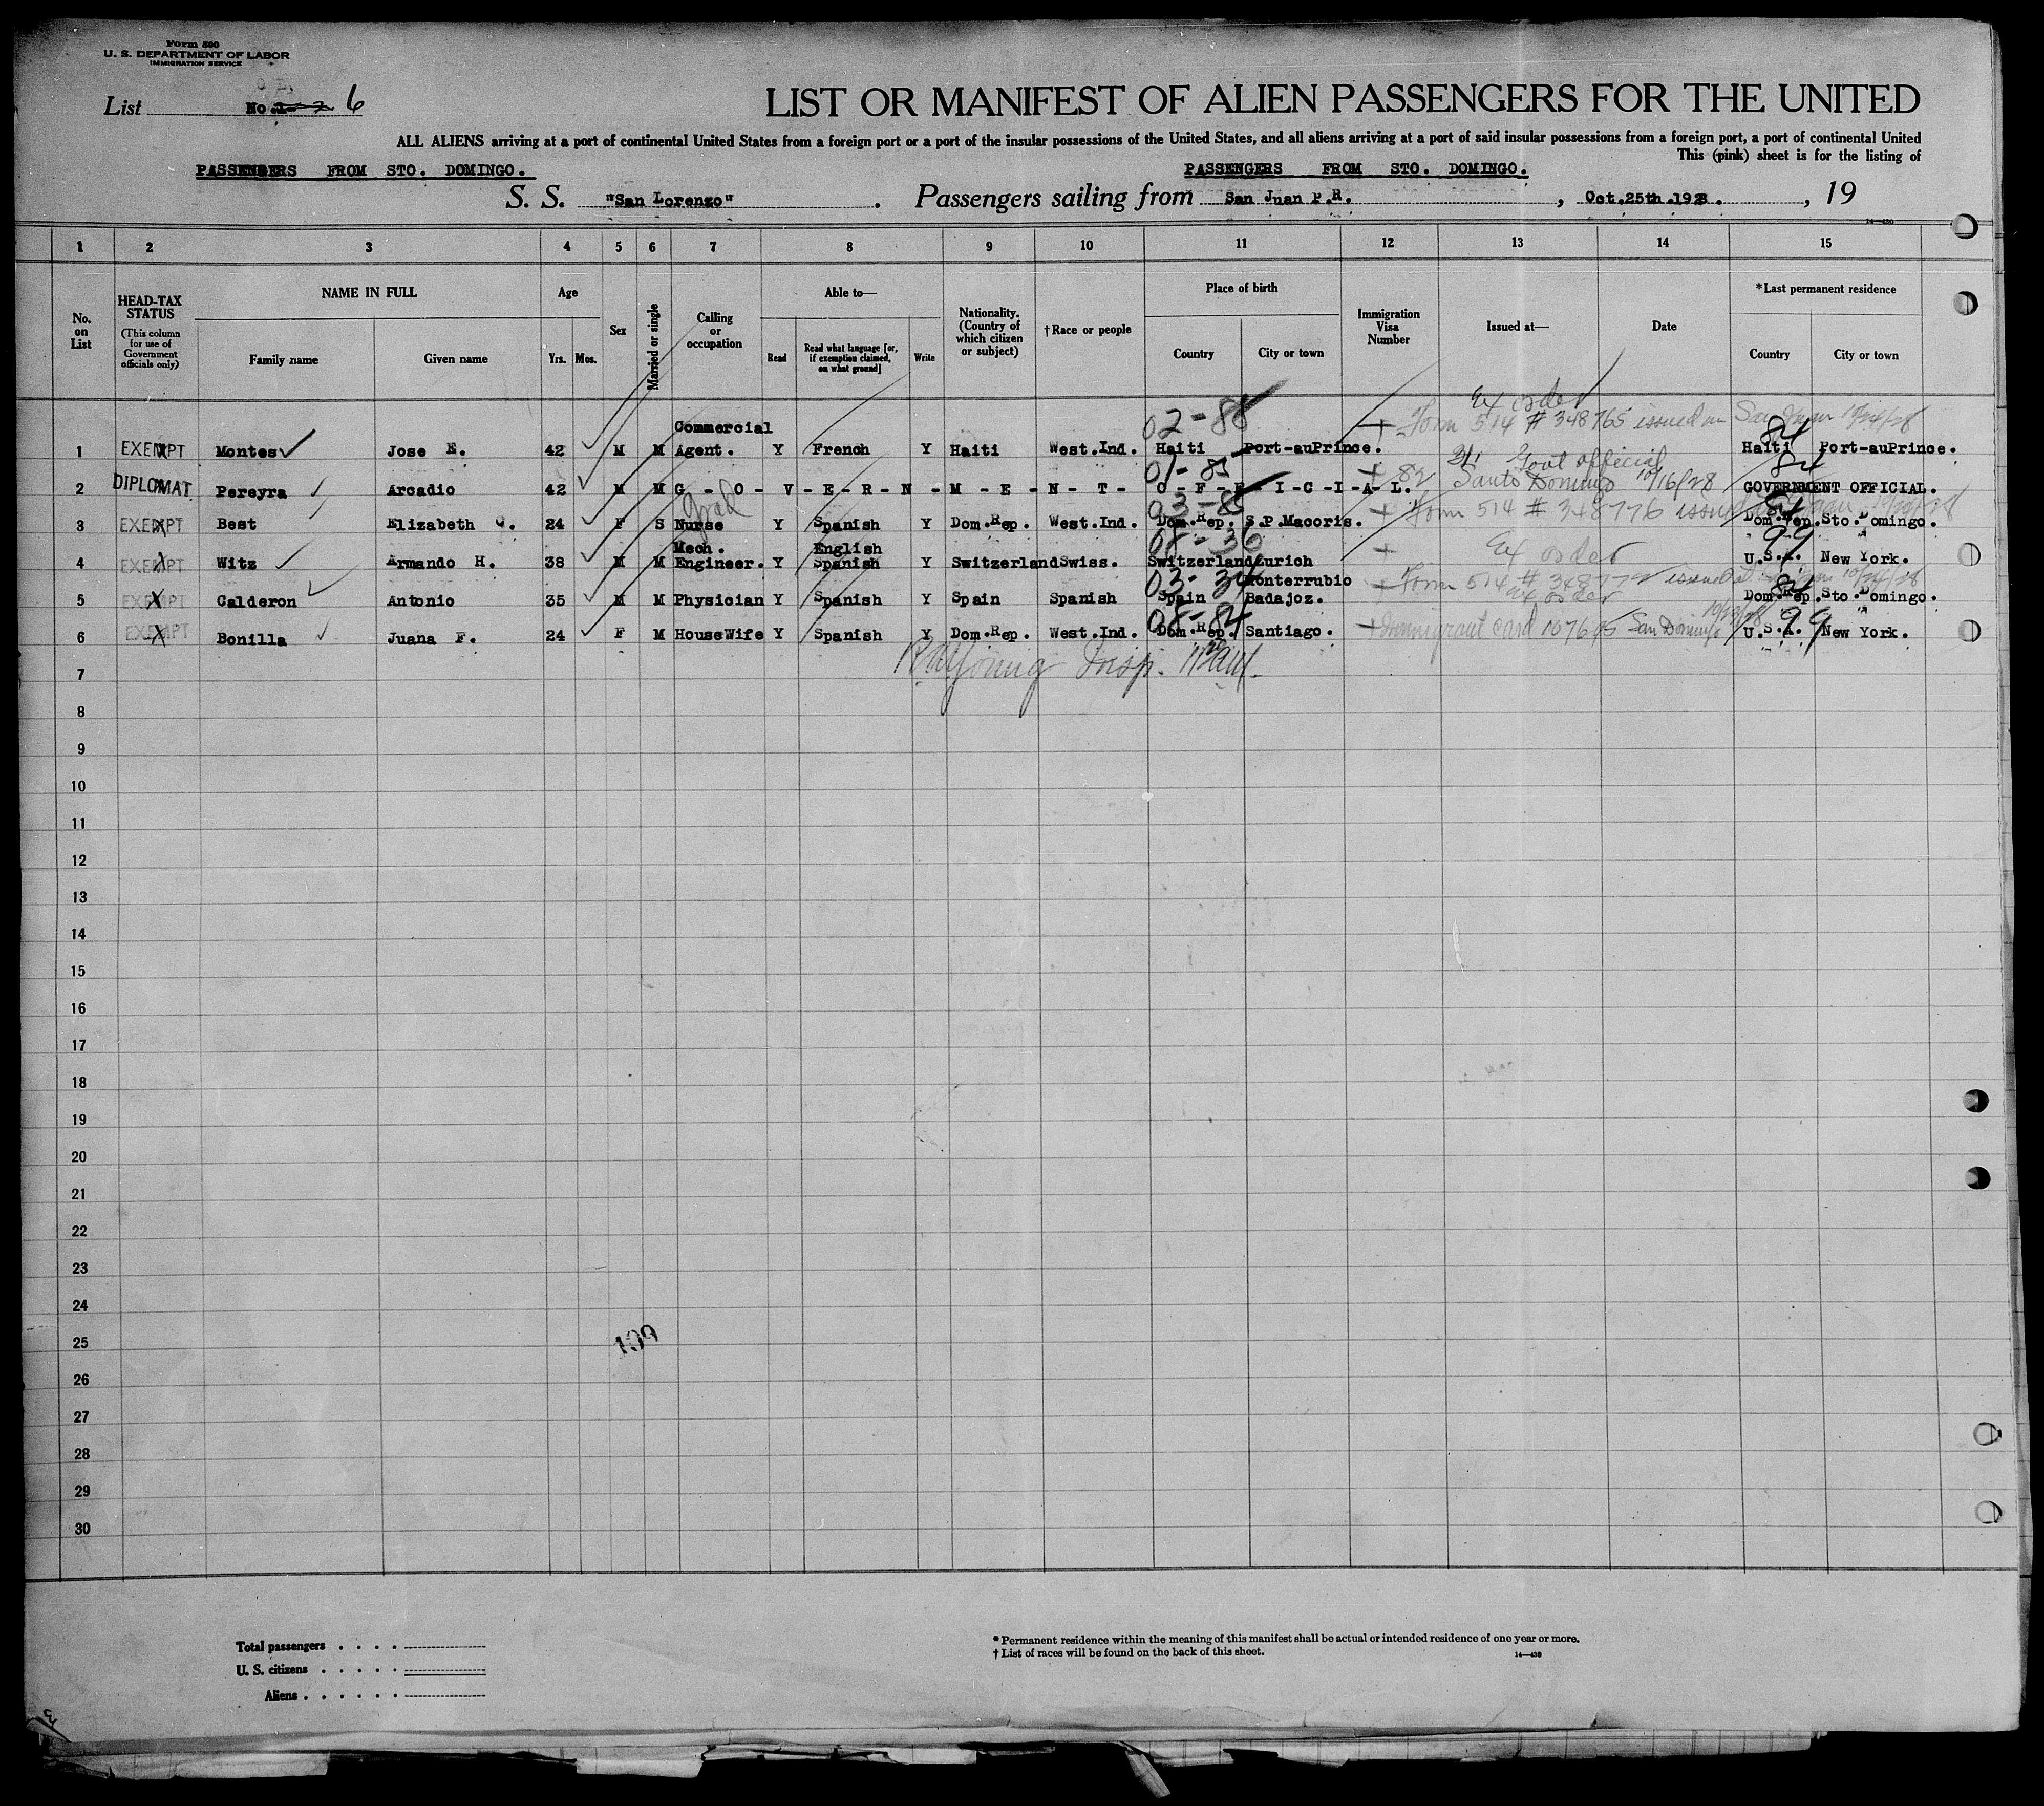 Form 500
U. S. DEPARTMENT OF LABOR
IMMIGRATION SERVICE
List No. 6
LIST OR MANIFEST OF ALIEN PASSENGERS FOR THE UNITED
ALL ALIENS arriving at a port of continental United States from a foreign port or a port of the insular possessions of the United States, and all aliens arriving at a port of said insular possessions from a foreign port, a port of continental United
This (pink) sheet is for the listing of
PASSENGERS FROM STO. DOMINGO. PASSENGERS FROM STO. DOMINGO.
S. S. "San Lorenzo" . Passengers sailing from San Juan P.R. , Oct.25th.1928. , 19
14—430
1 2 3 4 5 6 7 8 9 10 11 12 13 14 15
No. on List
HEAD-TAX STATUS
(This column for use of Government officials only)
NAME IN FULL
Family name Given name
Age
Yrs. Mos.
Sex
Married or single
Calling or occupation
Able to—
Read
Read what language [or, if exemption claimed, on what ground]
Write
Nationality. (Country of which citizen or subject)
†Race or people
Place of birth
Country City or town
Immigration Visa Number
Issued at—
Date
*Last permanent residence
Country City or town
Ex order
02-88 + Form 514 # 348765 issued San Juan 10/24/28
Commercial 84
1 EXEMPT Montes Jose E. 42 M M Agent. Y French Y Haiti West.Ind. Haiti Port-auPrince. Haiti Port-auPrince.
01-85 3/1 Govt official 84
+ 82 Santo Domingo 10/16/28
2 DIPLOMAT. Pereyra Arcadio 42 M M G - O - V - E - R - N - M - E - N - T - O - F - F - I - C - I - A - L. GOVERNMENT OFFICIAL.
Grad 03-85 + Form 514 # 348776
3 EXEMPT Best Elizabeth 24 F S Nurse Y Spanish Y Dom.Rep. West.Ind. Dom.Rep. S.P.Macoris. Dom.Rep. Sto.Domingo.
Mech. English 08-36 + Ex order 99
4 EXEMPT Witz Armando H. 38 M M Engineer. Y Spanish Y Switzerland Swiss. Switzerland Zurich U.S.A. New York.
03-34 Monterrubio + Form 514 # issued 10/24/28
Ex order 84
5 EXEMPT Calderon Antonio 35 M M Physician Y Spanish Y Spain Spanish Spain Badajoz. Dom.Rep. Sto.Domingo.
08-84 + Immigrant card 107695 San Domingo 99
6 EXEMPT Bonilla Juana F. 24 F M HouseWife Y Spanish Y Dom.Rep. West.Ind. Dom.Rep. Santiago. U.S.A. New York.
Insp.
7
8
9
10
11
12
13
14
15
16
17
18
19
20
21
22
23
24
25
109
26
27
28
29
30
Total passengers . . . .
U. S. citizens . . . . .
Aliens . . . . . .
* Permanent residence within the meaning of this manifest shall be actual or intended residence of one year or more.
† List of races will be found on the back of this sheet.
14—430